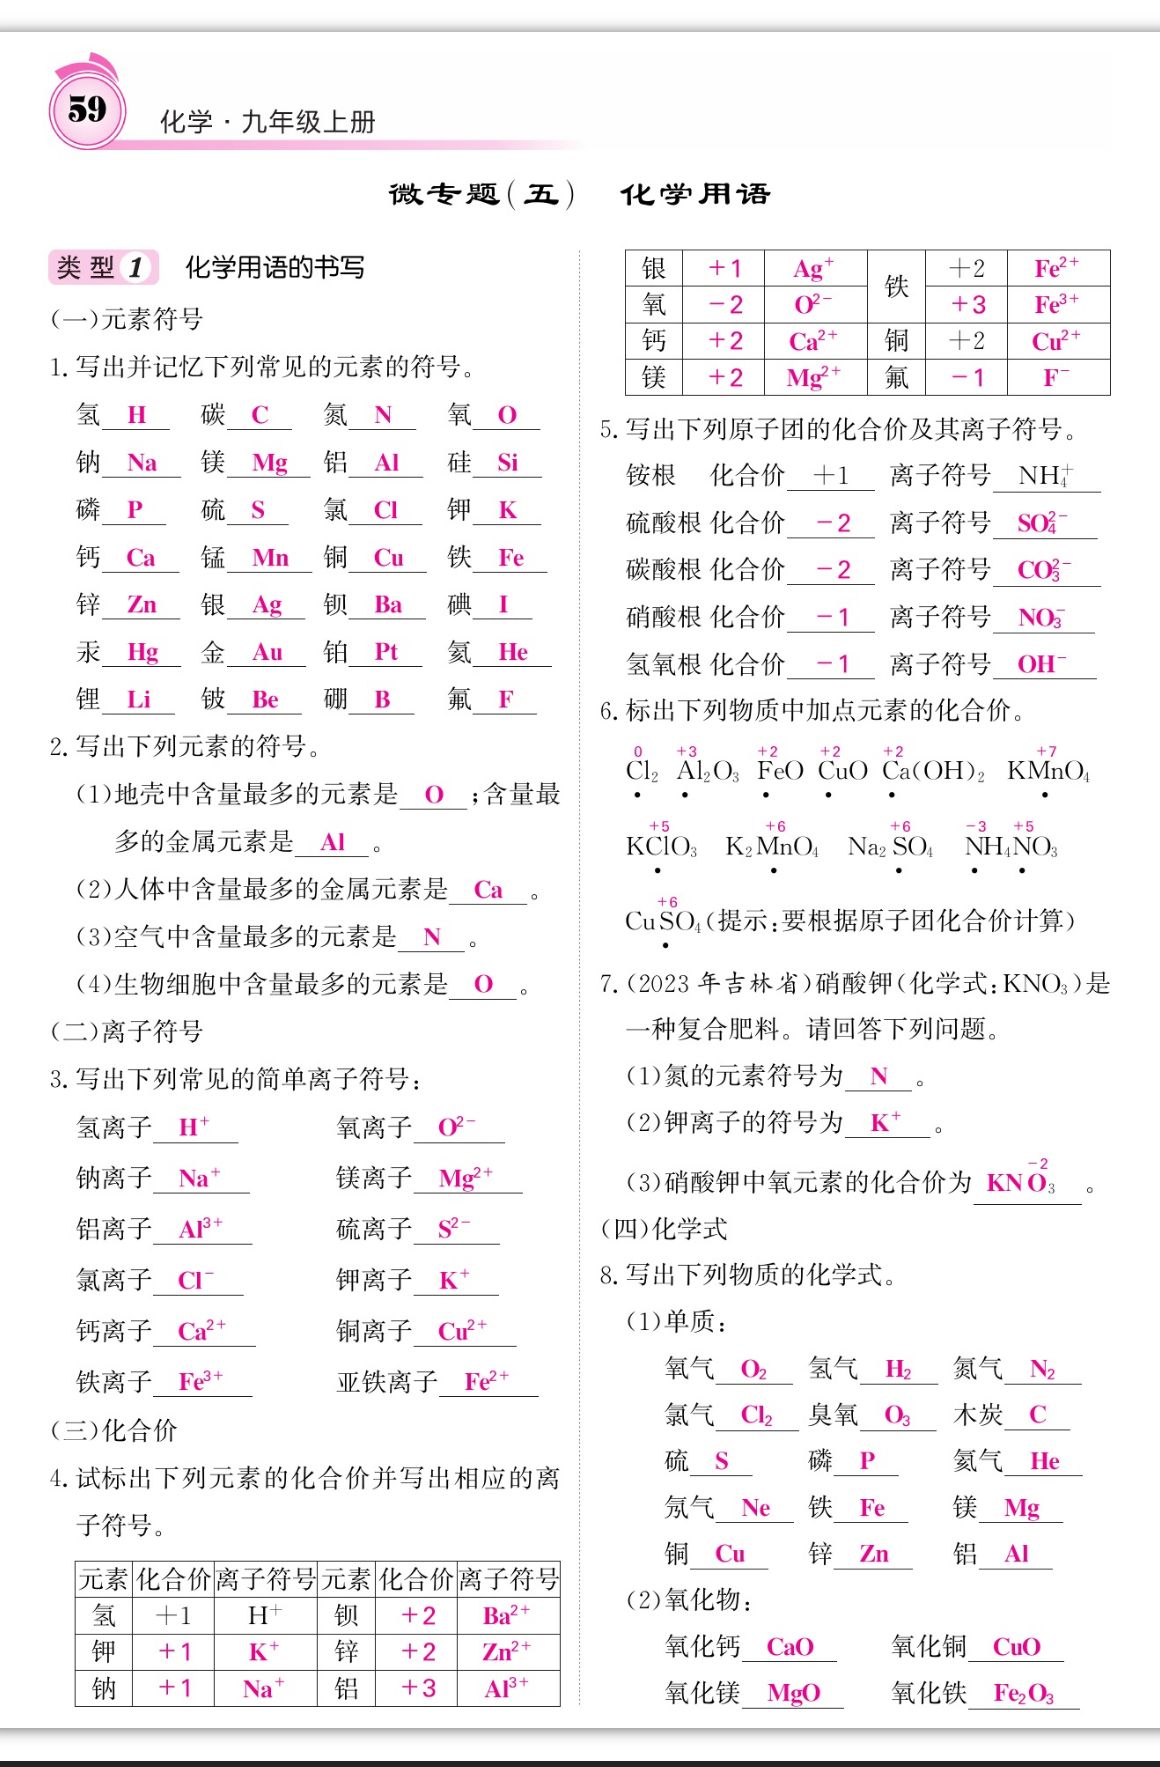 59
化学·九年级上册
微专题(五) 化学用语
类型1 化学用语的书写
(一)元素符号
1.写出并记忆下列常见的元素的符号。
氢 H 碳 C 氮 N 氧 O
钠 Na 镁 Mg 铝 Al 硅 Si
磷 P 硫 S 氯 Cl 钾 K
钙 Ca 锰 Mn 铜 Cu 铁 Fe
锌 Zn 银 Ag 钡 Ba 碘 I
汞 Hg 金 Au 铂 Pt 氦 He
锂 Li 铍 Be 硼 B 氟 F
2.写出下列元素的符号。
(1)地壳中含量最多的元素是 O ;含量最
多的金属元素是 Al 。
(2)人体中含量最多的金属元素是 Ca 。
(3)空气中含量最多的元素是 N 。
(4)生物细胞中含量最多的元素是 O 。
(二)离子符号
3.写出下列常见的简单离子符号:
氢离子 H⁺ 氧离子 O²⁻
钠离子 Na⁺ 镁离子 Mg²⁺
铝离子 Al³⁺ 硫离子 S²⁻
氯离子 Cl⁻ 钾离子 K⁺
钙离子 Ca²⁺ 铜离子 Cu²⁺
铁离子 Fe³⁺ 亚铁离子 Fe²⁺
(三)化合价
4.试标出下列元素的化合价并写出相应的离
子符号。
元素 化合价 离子符号 元素 化合价 离子符号
氢 +1 H⁺ 钡 +2 Ba²⁺
钾 +1 K⁺ 锌 +2 Zn²⁺
钠 +1 Na⁺ 铝 +3 Al³⁺
银 +1 Ag⁺ 铁 +2 Fe²⁺
氧 -2 O²⁻ +3 Fe³⁺
钙 +2 Ca²⁺ 铜 +2 Cu²⁺
镁 +2 Mg²⁺ 氟 -1 F⁻
5.写出下列原子团的化合价及其离子符号。
铵根 化合价 +1 离子符号 NH₄⁺
硫酸根 化合价 -2 离子符号 SO₄²⁻
碳酸根 化合价 -2 离子符号 CO₃²⁻
硝酸根 化合价 -1 离子符号 NO₃⁻
氢氧根 化合价 -1 离子符号 OH⁻
6.标出下列物质中加点元素的化合价。
0 +3 +2 +2 +2 +7
Cl₂ Al₂O₃ FeO CuO Ca(OH)₂ KMnO₄
+5 +6 +6 -3 +5
KClO₃ K₂MnO₄ Na₂SO₄ NH₄NO₃
+6
CuSO₄(提示:要根据原子团化合价计算)
7.(2023年吉林省)硝酸钾(化学式:KNO₃)是
一种复合肥料。请回答下列问题。
(1)氮的元素符号为 N 。
(2)钾离子的符号为 K⁺ 。
-2
(3)硝酸钾中氧元素的化合价为 KNO₃ 。
(四)化学式
8.写出下列物质的化学式。
(1)单质:
氧气 O₂ 氢气 H₂ 氮气 N₂
氯气 Cl₂ 臭氧 O₃ 木炭 C
硫 S 磷 P 氦气 He
氖气 Ne 铁 Fe 镁 Mg
铜 Cu 锌 Zn 铝 Al
(2)氧化物:
氧化钙 CaO 氧化铜 CuO
氧化镁 MgO 氧化铁 Fe₂O₃